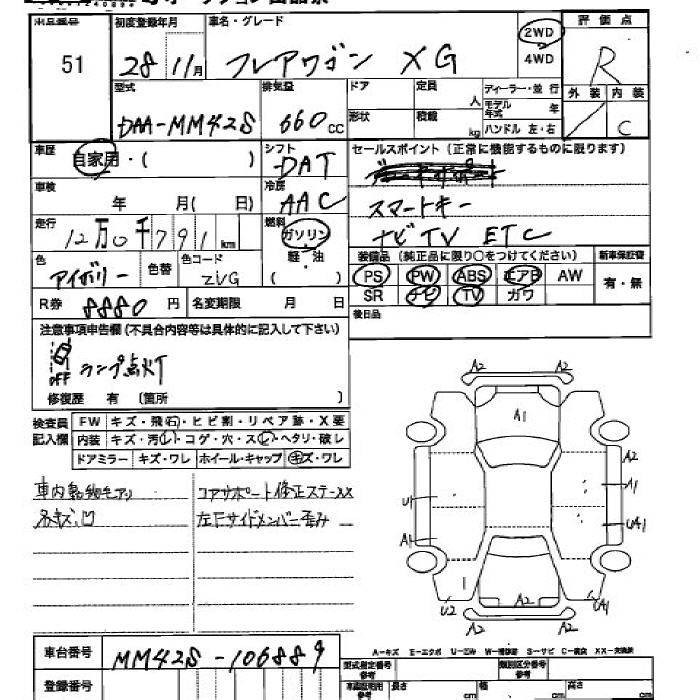 出品番号 初度登録年月 車名・グレード 2WD 評価点
51 28 11月 フレアワゴン XG 4WD R
型式 排気量 ドア 定員 人 ディーラー・並行 外装 内装
DAA-MM42S 660cc 形状 積載 kg モデル年式 年 C
ハンドル 左・右
車歴 自家用・( ) シフト DAT セールスポイント (正常に機能するものに限ります)
車検 年 月( 日) 冷房 AAC スマートキー
走行 12万0千791km 燃料 ガソリン ナビ TV ETC
軽・油
( )
色 アイボリー 色替 色コード ZVG 装備品 (純正品に限り○をつけてください) 新車保証書
PS PW ABS エアB AW 有・無
R券 8880円 名変期限 月 日 SR ナビ TV ガワ
後日品
注意事項申告欄 (不具合内容等は具体的に記入して下さい)
OFF ランプ点灯
修復歴 有 (箇所 )
検査員記入欄 FW キズ・飛石・ヒビ割・リペア跡・X要
内装 キズ・汚レ・コゲ・穴・スレ・ヘタリ・破レ
ドアミラー キズ・ワレ ホイール・キャップ キズ・ワレ
コアサポート修正ステーXX
各キズ、凹 左Fサイドメンバー歪み
A2 A2
A1
A2
U1 A1
A1 UA1
U2 A2 A2 UA1
車台番号 MM42S-106889
A－キズ E－エクボ U－凹 W－補修跡 S－サビ C－腐食 XX－交換済
登録番号 型式指定番号 類別区分番号
長さ cm 幅 cm 高さ cm